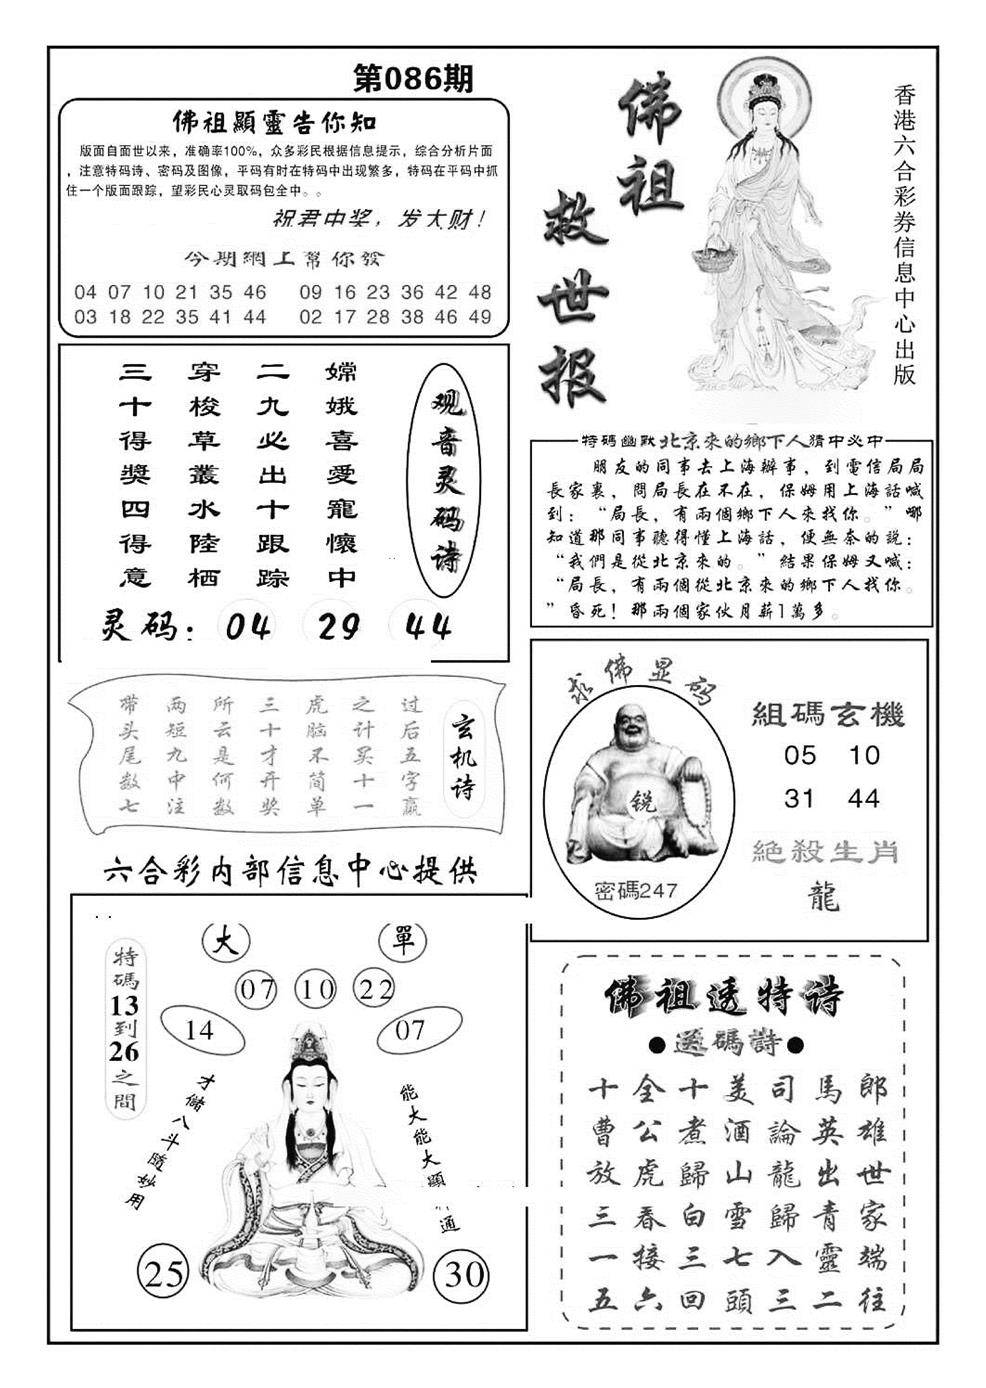 第086期
佛祖顯靈告你知
版面自面世以来，准确率100%，众多彩民根据信息提示，综合分析片面
，注意特码诗、密码及图像，平码有时在特码中出现繁多，特码在平码中抓
住一个版面跟踪，望彩民心灵取码包全中。。
祝君中奖，发大财！
今期網上幫你發
04 07 10 21 35 46 09 16 23 36 42 48
03 18 22 35 41 44 02 17 28 38 46 49
佛祖
救世报
香港六合彩券信息中心出版
观音灵码诗
嫦娥喜愛寵懷中
二九必出十跟踪
穿梭草叢水陸栖
三十得獎四得意
灵码：04 29 44
特碼幽默北京來的鄉下人猜中必中
朋友的同事去上海辦事，到電信局局
長家裏，問局長在不在，保姆用上海話喊
到：“局長，有兩個鄉下人來找你。”哪
知道那同事聽得懂上海話，便無奈的説：
“我們是從北京來的。”結果保姆又喊：
“局長，有兩個從北京來的鄉下人找你。
”昏死！那兩個家伙月薪1萬多。
玄机诗
过后五字赢
之计买十一
虎脑不简单
三十才开奖
所云是何数
两短九中注
带头尾数七
六合彩内部信息中心提供
求佛显码
锐
密碼247
組碼玄機
05 10
31 44
絕殺生肖
龍
大 單
07 10 22
14 07
特碼13到26之間
才儲八斗隨妙用
能大能大顯神通
25 30
佛祖透特诗
●送碼詩●
郎雄世家端往
馬英出青靈二
司論龍歸入三
美酒山雪七頭
十煮歸白三回
全公虎春接六
十曹放三一五